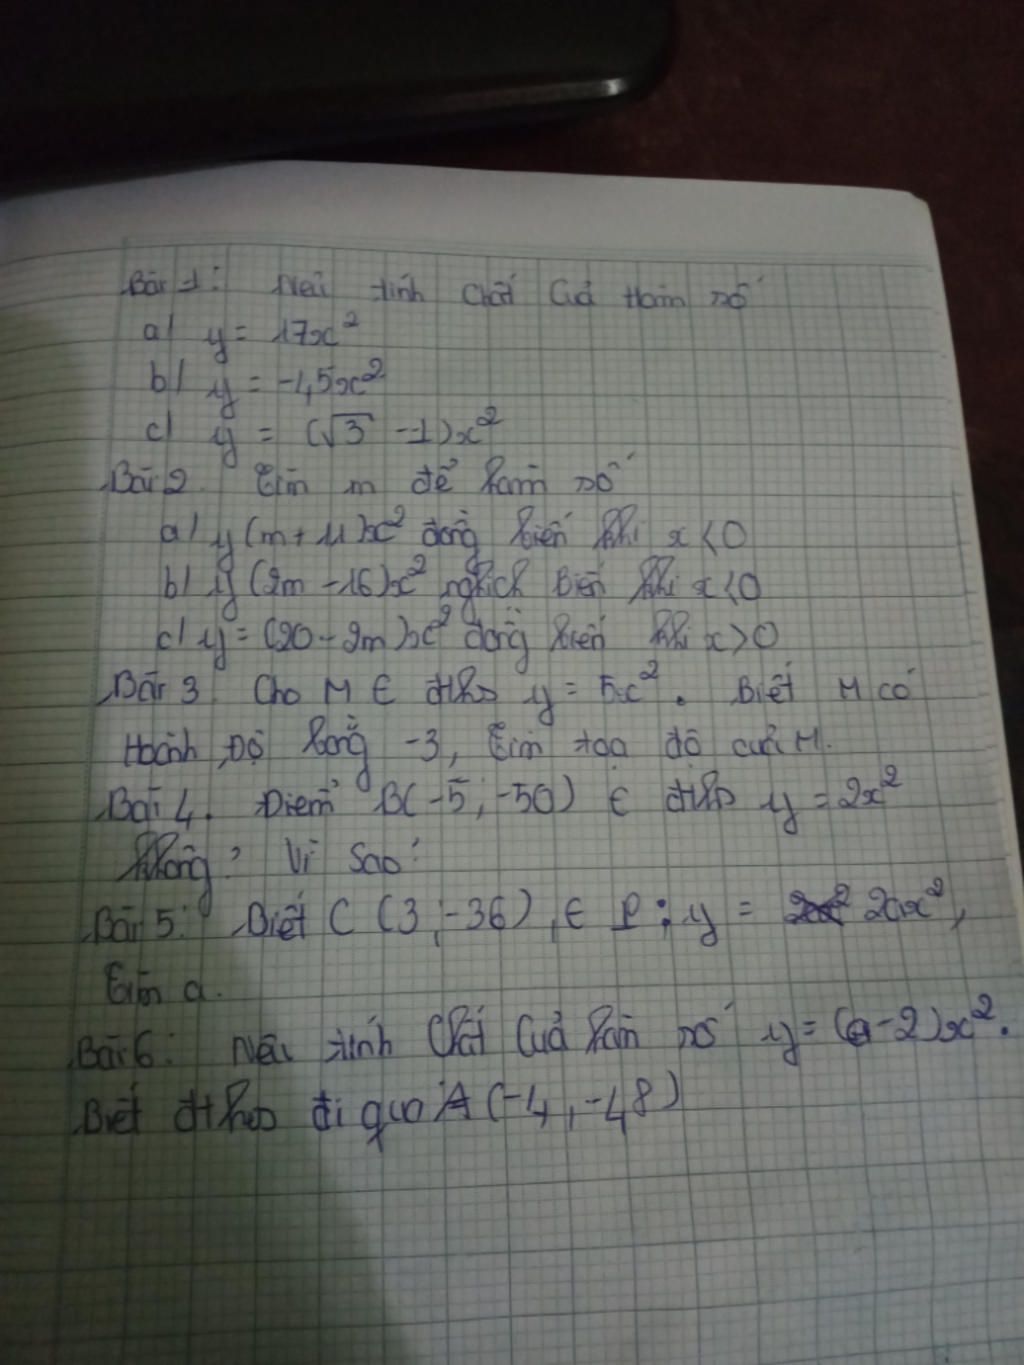 Bài 1: Nêu tính chất của hàm số
a) y = 17x²
b) y = -1,5x²
c) y = (√3 - 1)x²
Bài 2. Tìm m để hàm số
a) y (m + 11)x² đồng biến khi x < 0
b) y (2m - 16)x² nghịch biến khi x < 0
c) y = (20 - 2m)x² đồng biến khi x > 0
Bài 3. Cho M ∈ đths y = 5x². Biết M có
Hoành độ bằng -3, Tìm tọa độ của M.
Bài 4. Điểm B(-5; -50) ∈ đths y = 2x²
không? Vì sao?
Bài 5: Biết C (3; -36) ∈ P: y = 2ax²,
Tìm a.
Bài 6: Nêu tính chất của hàm số y = (a-2)x².
Biết đths đi qua A (-4, -48)